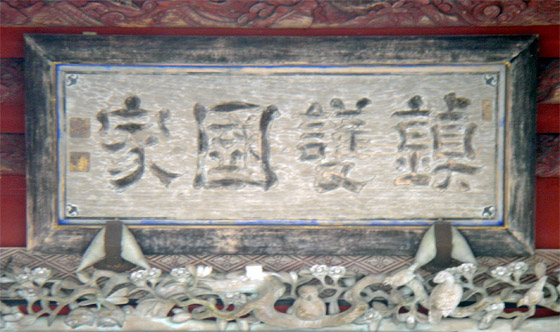 鎮護國家